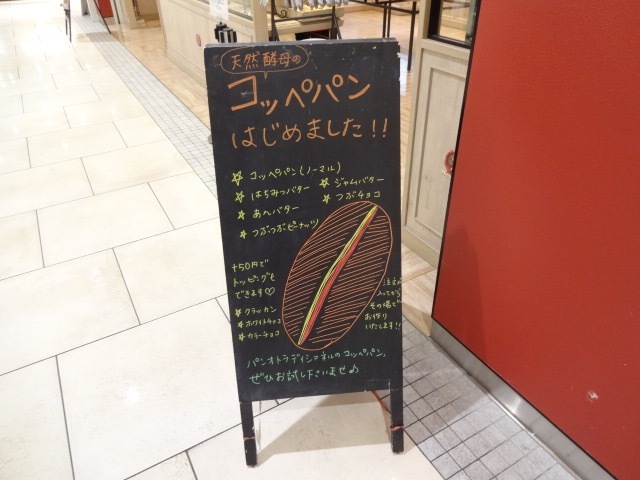 天然酵母の
コッペパン
はじめました!!
☆ コッペパン(ノーマル)
☆ はちみつバター ☆ ジャムバター
☆ あんバター ☆ つぶチョコ
☆ つぶつぶピーナッツ
+50円で
トッピングも
できます♡
☆ クラッカン
☆ ホワイトチョコ
☆ カラーチョコ
注文が
入ってから
その場で
お作り
いたします!!
パンオトラディショネルのコッペパン、
ぜひお試し下さいませ♪